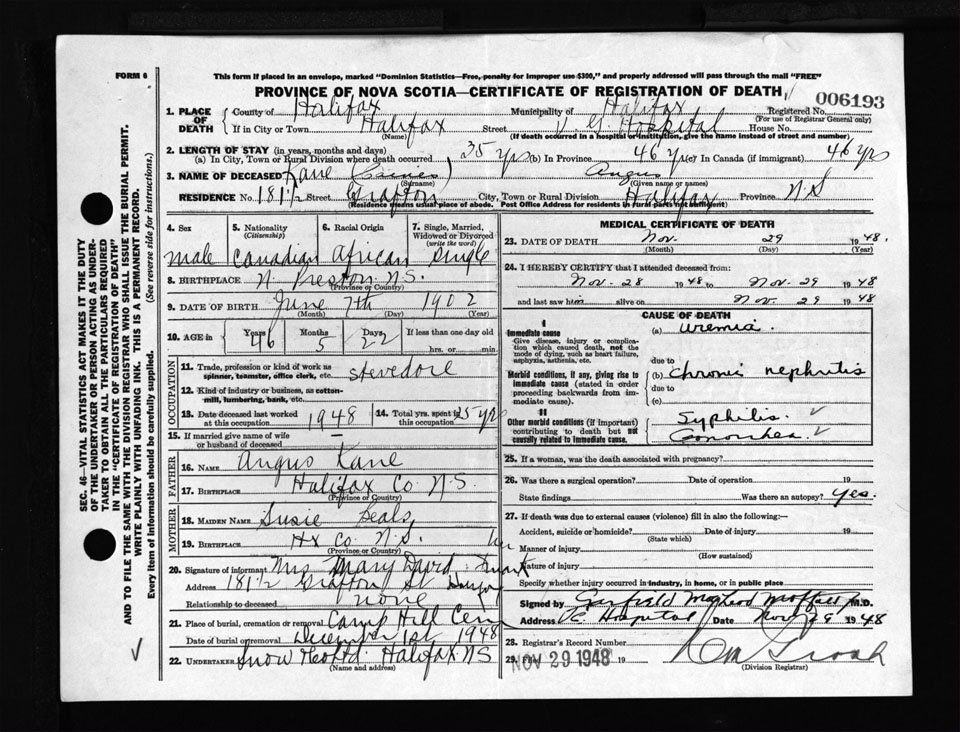 FORM 6
This form if placed in an envelope, marked "Dominion Statistics—Free, penalty for improper use $300," and properly addressed will pass through the mail "FREE"
PROVINCE OF NOVA SCOTIA—CERTIFICATE OF REGISTRATION OF DEATH
006193
1. PLACE OF DEATH
County of Halifax Municipality of Halifax Registered No.
(For use of Registrar General only)
If in City or Town Halifax Street Hospital House No.
(Name) (If death occurred in a hospital or institution, give the name instead of street and number)
2. LENGTH OF STAY (in years, months and days)
(a) In City, Town or Rural Division where death occurred 35 yrs (b) In Province 46 yr (c) In Canada (if immigrant) 46 yrs
3. NAME OF DECEASED Kane Angus
(Surname) (Given name or names)
RESIDENCE No. 181½ Street Grafton City, Town or Rural Division Halifax Province N.S
(Residence means usual place of abode. Post Office Address for residents in rural parts not sufficient)
4. Sex
male
5. Nationality (Citizenship)
Canadian
6. Racial Origin
African
7. Single, Married, Widowed or Divorced (write the word)
Single
8. BIRTHPLACE N. Preston N.S.
(Province or Country)
9. DATE OF BIRTH June 7th 1902
(Month) (Day) (Year)
10. AGE in Years Months Days If less than one day old
46 5 22 hrs. or min.
OCCUPATION
11. Trade, profession or kind of work as spinner, teamster, office clerk, etc. stevedore
12. Kind of industry or business, as cotton-mill, lumbering, bank, etc.
13. Date deceased last worked at this occupation 1948
14. Total yrs. spent in 15 yrs
15. If married give name of wife or husband of deceased —
FATHER
16. NAME Angus Kane
17. BIRTHPLACE Halifax Co N.S.
(Province or Country)
MOTHER
18. MAIDEN NAME Susie Beals
19. BIRTHPLACE Hx Co N.S.
(Province or Country)
20. Signature of informant Mrs Mary David
Address 181½ Grafton St
Relationship to deceased none
21. Place of burial, cremation or removal Camp Hill Cem
Date of burial or removal December 1st 1948
22. UNDERTAKER Snow Halifax NS
(Name and address)
MEDICAL CERTIFICATE OF DEATH
23. DATE OF DEATH Nov. 29 1948.
(Month) (Day) (Year)
24. I HEREBY CERTIFY that I attended deceased from:
Nov. 28 1948 to Nov. 29 1948
and last saw him alive on Nov. 29 1948
CAUSE OF DEATH
I
Immediate cause (a) uremia.
-Give disease, injury or complication which caused death, not the mode of dying, such as heart failure, asphyxia, asthenia, etc.
due to
Morbid conditions, if any, giving rise to immediate cause (stated in order proceeding backwards from immediate cause).
(b) Chronic nephritis
due to
(c)
II
Other morbid conditions (if important) contributing to death but not causally related to immediate cause.
Syphilis. ✓
Gonorrhea. ✓
25. If a woman, was the death associated with pregnancy?
26. Was there a surgical operation? Date of operation 19
State findings Was there an autopsy? Yes.
27. If death was due to external causes (violence) fill in also the following:—
Accident, suicide or homicide? Date of injury 19
(State which)
Manner of injury
(How sustained)
Nature of injury
Specify whether injury occurred in industry, in home, or in public place
Signed by Garfield McLeod Moffatt M.D.
Address V.G. Hospital Date Nov 29 1948
28. Registrar's Record Number
29. Filed NOV 29 1948 19
(Division Registrar)
SEC. 46—VITAL STATISTICS ACT MAKES IT THE DUTY OF THE UNDERTAKER OR PERSON ACTING AS UNDERTAKER TO OBTAIN ALL THE PARTICULARS REQUIRED IN THE "CERTIFICATE OF REGISTRATION OF DEATH" AND TO FILE THE SAME WITH THE DIVISION REGISTRAR WHO SHALL ISSUE THE BURIAL PERMIT.
WRITE PLAINLY WITH UNFADING INK. THIS IS A PERMANENT RECORD.
Every item of information should be carefully supplied. (See reverse side for instructions.)